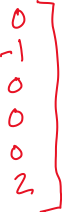 0
-1
0
0
0
2
]